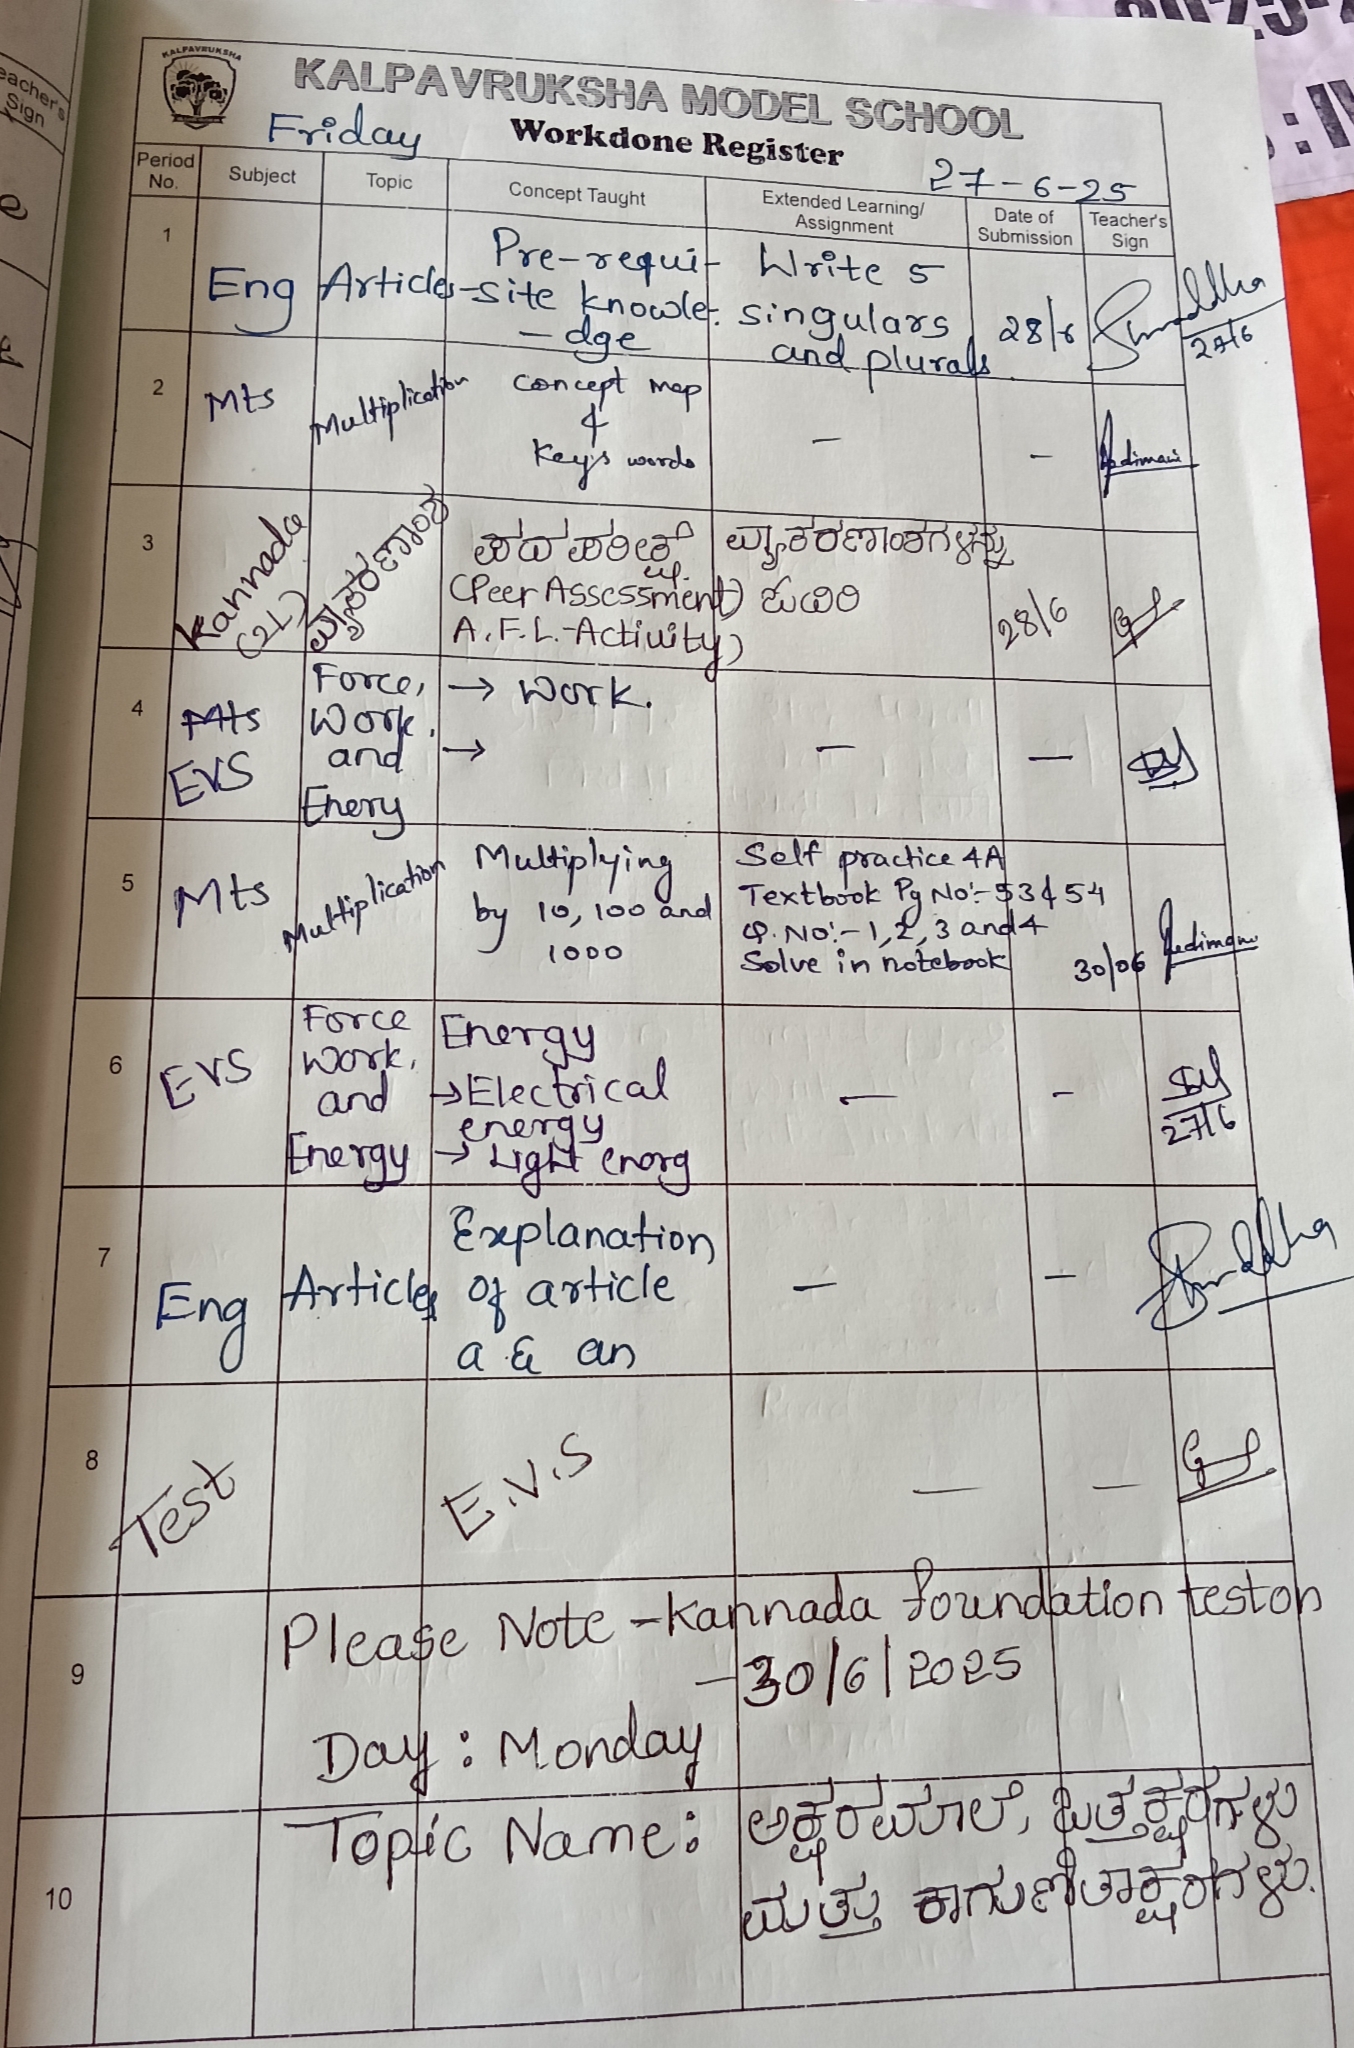 2025-2
: IV
eacher's
Sign
KALPAVRUKSHA
KALPAVRUKSHA MODEL SCHOOL
Friday
Workdone Register
27-6-25
Period No.
Subject
Topic
Concept Taught
Extended Learning/ Assignment
Date of Submission
Teacher's Sign
1
Eng
Articles
Pre-requi-
-site knowle-
-dge
Write 5
singulars
and plurals
28/6
Shraddha
27/6
2
Mts
Multiplication
concept map
&
Keys words
-
-
3
Kannada
(2L)
ವ್ಯಾಕರಣಾಂಶ
ಪದ ಪರೀಕ್ಷೆ
(Peer Assessment)
A.F.L.-Activity)
ವ್ಯಾಕರಣಾಂಶಗಳನ್ನು
ಓದಿರಿ
28/6
4
Mts
EVS
Force,
Work,
and
Enery
→ Work.
→
-
-
5
Mts
Multiplication
Multiplying
by 10, 100 and
1000
Self practice 4A
Textbook Pg No:- 53 & 54
Q. No:- 1, 2, 3 and 4
Solve in notebook
30/06
6
EVS
Force
Work,
and
Energy
Energy
→ Electrical
energy
→ Light energ
-
-
27/6
7
Eng
Articles
Explanation
of article
a & an
-
-
Shraddha
8
Test
E.V.S
-
-
9
Please Note - Kannada foundation test on
- 30/6/2025
Day : Monday
10
Topic Name:
ಅಕ್ಷರಮಾಲೆ, ಒತ್ತಕ್ಷರಗಳು
ಮತ್ತು ಕಾಗುಣಿತಾಕ್ಷರಗಳು.